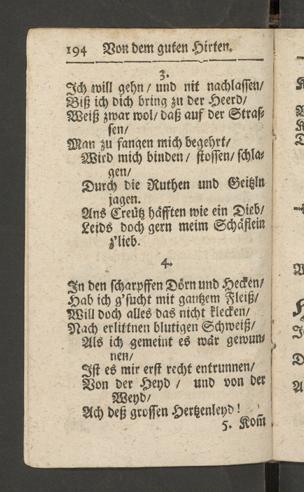 194 Von dem guten Hirten.
3.
Ich will gehn / und nit nachlassen /
Biß ich dich bring zu der Heerd /
Weiß zwar wol / daß auf der Stras-
sen /
Man zu fangen mich begehrt /
Wird mich binden / stossen / schla-
gen /
Durch die Ruthen und Geißln
jagen.
Ans Creutz häfften wie ein Dieb /
Leids doch gern meim Schäflein
z'lieb.
4.
In den scharpffen Dörn und Hecken /
Hab ich g'sucht mit gantzem Fleiß /
Will doch alles das nicht klecken /
Nach erlittnen blutigen Schweiß /
Als ich gemeint es wär gewun-
nen /
Ist es mir erst recht entrunnen /
Von der Heyd / und von der
Weyd /
Ach deß grossen Hertzenleyd !
5. Kom̃